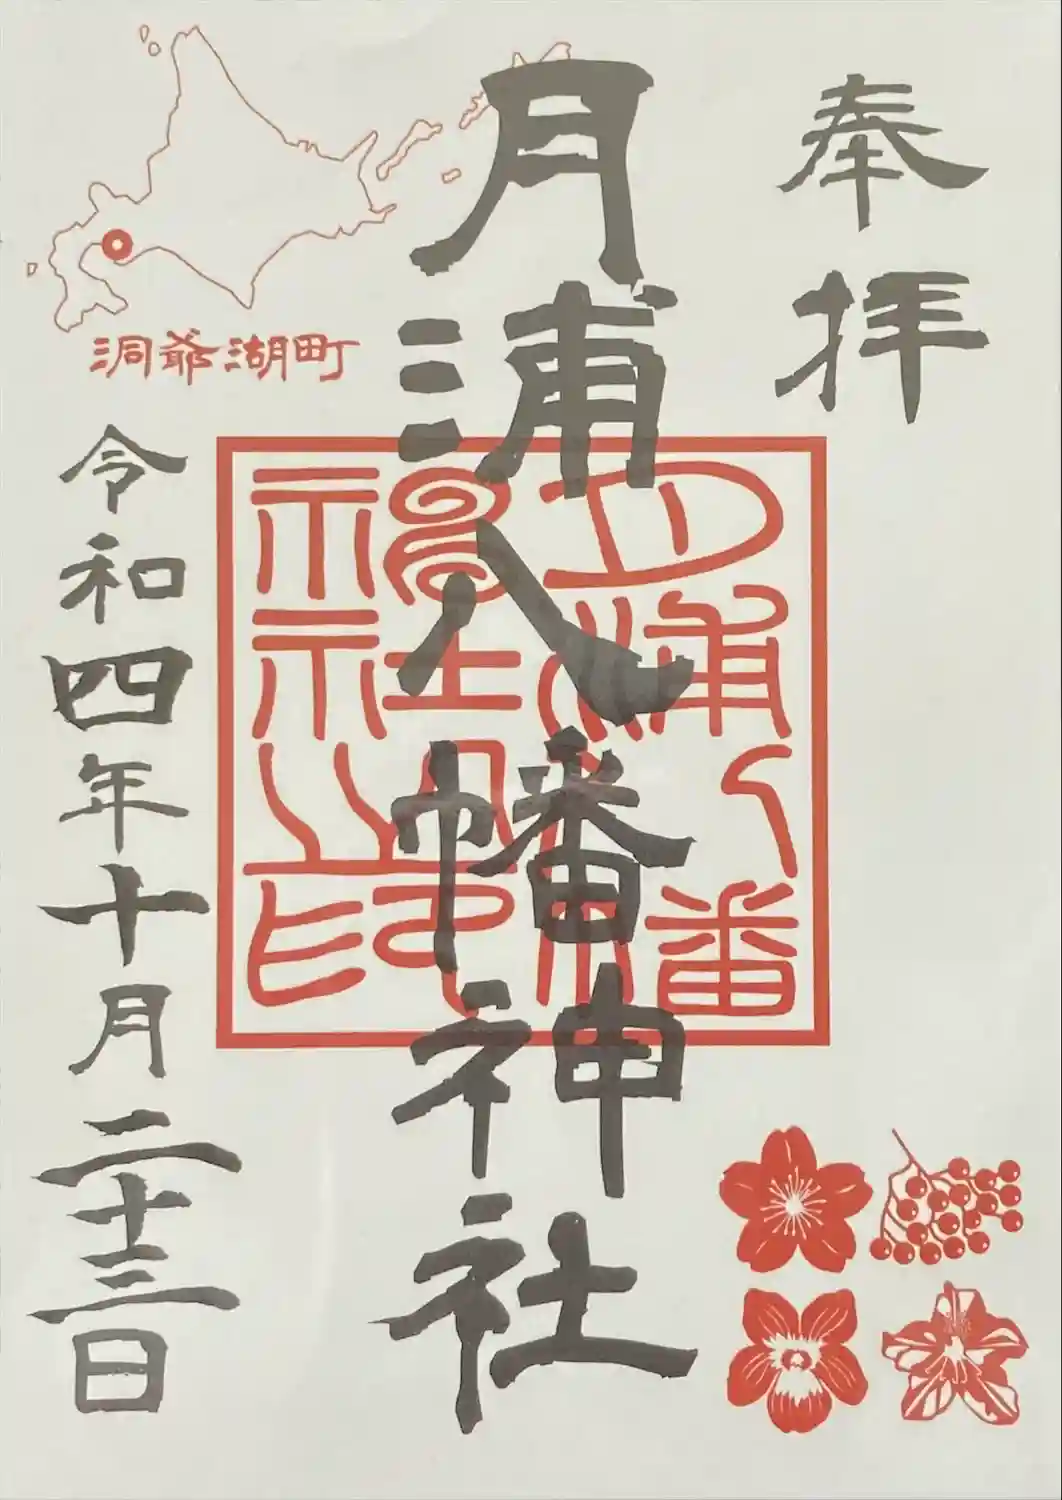 奉拝
月浦八幡神社
月浦八幡神社之印
洞爺湖町
令和四年十月二十三日